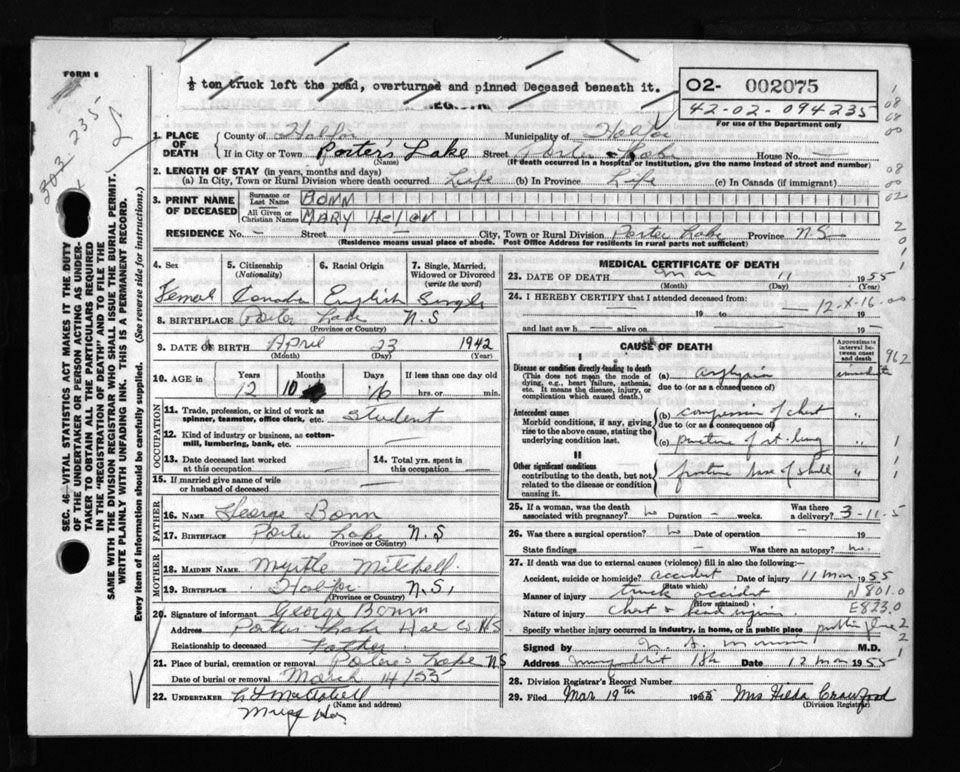 FORM 6
½ ton truck left the road, overturned and pinned Deceased beneath it.
02- 002075
42-02-094235
For use of the Department only
303 235
1. PLACE OF DEATH
County of Halifax Municipality of Halifax
If in City or Town Porter's Lake Street Porter's Lake House No. —
(Name) (If death occurred in a hospital or institution, give the name instead of street and number)
2. LENGTH OF STAY (in years, months and days)
(a) In City, Town or Rural Division where death occurred Life (b) In Province Life (c) In Canada (if immigrant)
3. PRINT NAME OF DECEASED
Surname or Last Name BONN
All Given or Christian Names MARY HELEN
RESIDENCE No. — Street — City, Town or Rural Division Porter Lake Province N.S
(Residence means usual place of abode. Post Office Address for residents in rural parts not sufficient)
4. Sex 5. Citizenship (Nationality) 6. Racial Origin 7. Single, Married, Widowed or Divorced (write the word)
Female Canada English Single
8. BIRTHPLACE Porter Lake N.S
(Province or Country)
9. DATE OF BIRTH April 23 1942
(Month) (Day) (Year)
10. AGE in Years Months Days If less than one day old
12 10 16 hrs. or min.
OCCUPATION
11. Trade, profession, or kind of work as spinner, teamster, office clerk, etc. student
12. Kind of industry or business, as cotton-mill, lumbering, bank, etc. —
13. Date deceased last worked at this occupation — 14. Total yrs. spent in this occupation —
15. If married give name of wife or husband of deceased —
FATHER
16. NAME George Bonn
17. BIRTHPLACE Porter Lake N.S
(Province or Country)
MOTHER
18. MAIDEN NAME Myrtle Mitchell
19. BIRTHPLACE Halifax N.S,
(Province or Country)
20. Signature of informant George Bonn
Address Porters Lake Hal Co. NS
Relationship to deceased Father
21. Place of burial, cremation or removal Porter's Lake NS
Date of burial or removal March 14/55
22. UNDERTAKER
(Name and address)
MEDICAL CERTIFICATE OF DEATH
23. DATE OF DEATH Mar 11 1955
(Month) (Day) (Year)
24. I HEREBY CERTIFY that I attended deceased from:
19 to 19
12-X-16-00
and last saw h alive on 19
CAUSE OF DEATH
Approximate interval between onset and death
I
Disease or condition directly leading to death
(This does not mean the mode of dying, e.g., heart failure, asthenia, etc. It means the disease, injury, or complication which caused death.)
(a)
due to (or as a consequence of)
immediate
962
Antecedent causes
Morbid conditions, if any, giving rise to the above cause, stating the underlying condition last.
(b) compression of chest "
due to (or as a consequence of)
(c) puncture of rt. lung "
II
Other significant conditions
contributing to the death, but not related to the disease or condition causing it.
fracture base of skull "
25. If a woman, was the death associated with pregnancy? no Duration – weeks. Was there a delivery?
3-11-5
26. Was there a surgical operation? no Date of operation — 19
State findings — Was there an autopsy? no.
27. If death was due to external causes (violence) fill in also the following:
Accident, suicide or homicide? accident Date of injury 11 Mar 1955
(State which)
Manner of injury truck accident N801.0
(How sustained)
Nature of injury chest & head injuries E823.0
Specify whether injury occurred in industry, in home, or in public place public place
Signed by M.D.
Address Date 12 Mar 1955
28. Division Registrar's Record Number
29. Filed Mar 19th 1955 Mrs Hilda Crawford
(Division Registrar)
SEC. 46—VITAL STATISTICS ACT MAKES IT THE DUTY
OF THE UNDERTAKER OR PERSON ACTING AS UNDER-
TAKER TO OBTAIN ALL THE PARTICULARS REQUIRED
IN THE "REGISTRATION OF DEATH" AND TO FILE THE
SAME WITH THE DIVISION REGISTRAR WHO SHALL ISSUE THE BURIAL PERMIT.
WRITE PLAINLY WITH UNFADING INK. THIS IS A PERMANENT RECORD.
Every item of information should be carefully supplied. (See reverse side for instructions.)